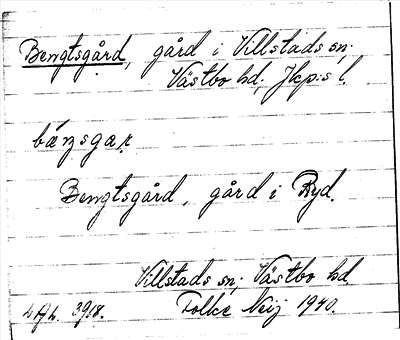 Bengtsgård, gård i Villstads sn;
Västbo hd; Jkp:s l.
bángsgaṛ
Bengtsgård, gård i Ryd.
Villstads sn; Västbo hd
3918. Folke Neij 1940.